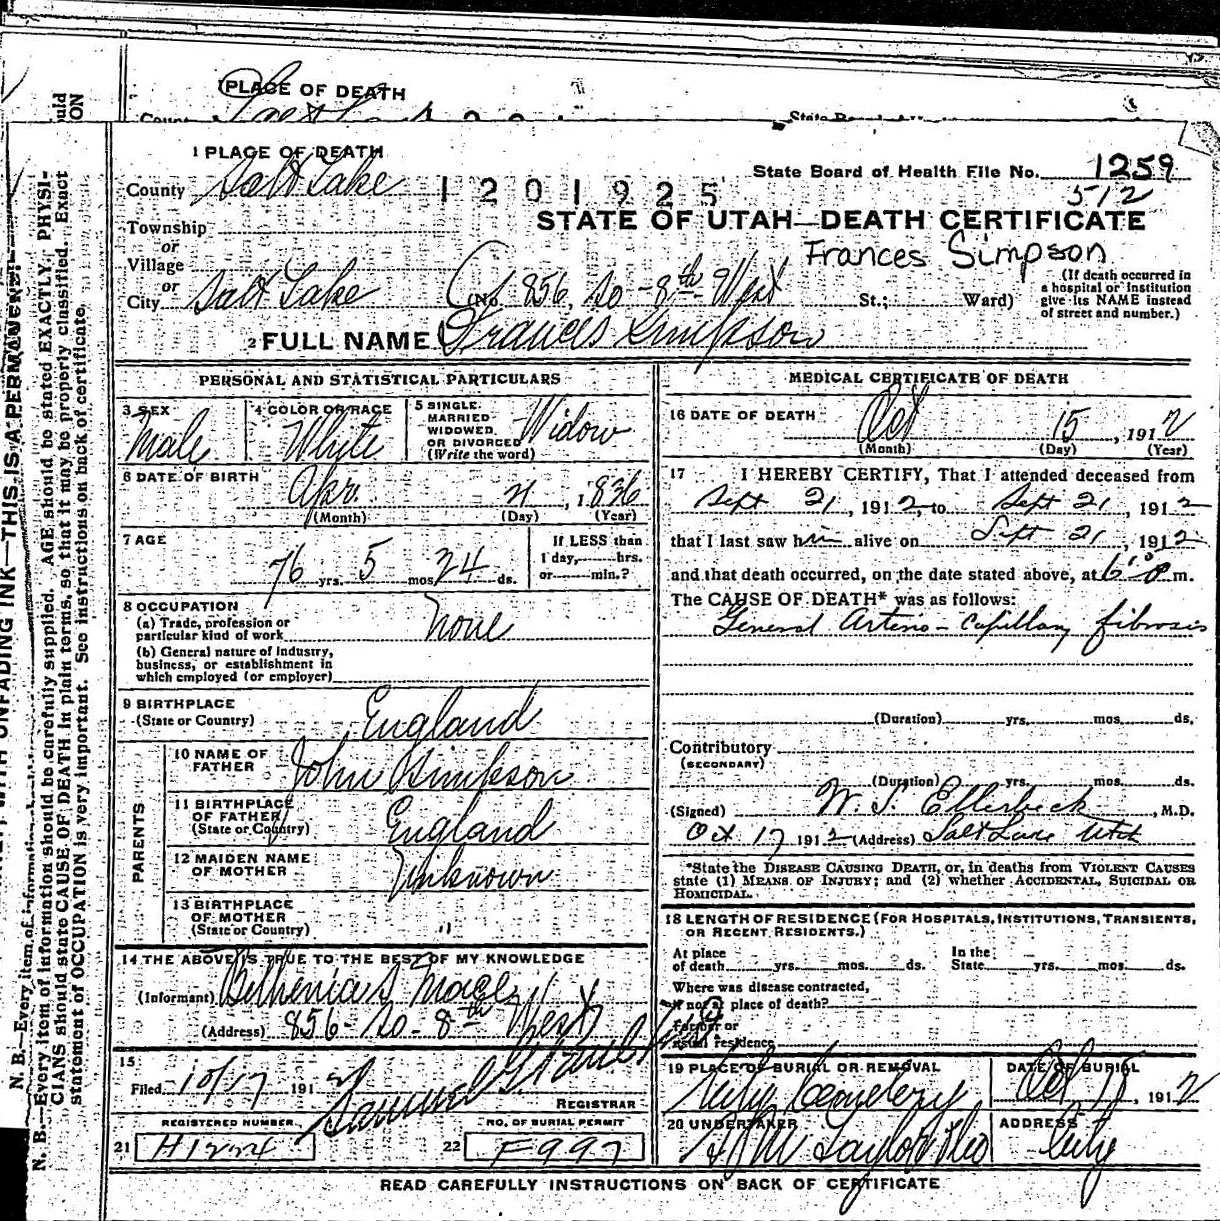 PLACE OF DEATH
1 PLACE OF DEATH
County Salt Lake
1201925
State Board of Health File No. 1259
512
Township
or
Village
or
City Salt Lake
STATE OF UTAH—DEATH CERTIFICATE
Frances Simpson
(No. 856, So - 8th West St.; Ward)
(If death occurred in
a hospital or institution
give its NAME instead
of street and number.)
2 FULL NAME Frances Simpson
PERSONAL AND STATISTICAL PARTICULARS
3 SEX
Male
4 COLOR OR RACE
White
5 SINGLE
MARRIED
WIDOWED
OR DIVORCED
(Write the word)
Widow
6 DATE OF BIRTH
Apr. 21, 1836
(Month) (Day) (Year)
7 AGE
76 yrs. 5 mos. 24 ds.
If LESS than
1 day, hrs.
or min.?
8 OCCUPATION
(a) Trade, profession or
particular kind of work None
(b) General nature of industry,
business, or establishment in
which employed (or employer)
9 BIRTHPLACE
(State or Country) England
PARENTS
10 NAME OF
FATHER John Simpson
11 BIRTHPLACE
OF FATHER
(State or Country) England
12 MAIDEN NAME
OF MOTHER Unknown
13 BIRTHPLACE
OF MOTHER
(State or Country) "
14 THE ABOVE IS TRUE TO THE BEST OF MY KNOWLEDGE
(Informant)
(Address) 856 - So - 8th West
15
Filed 10/17 1912
Samuel G.
REGISTRAR
REGISTERED NUMBER
21 H1224
NO. OF BURIAL PERMIT
22 F997
MEDICAL CERTIFICATE OF DEATH
16 DATE OF DEATH
Oct 15, 1912
(Month) (Day) (Year)
17 I HEREBY CERTIFY, That I attended deceased from
Sept 21, 1912, to Sept 21, 1912
that I last saw him alive on Sept 21, 1912
and that death occurred, on the date stated above, at 6 P m.
The CAUSE OF DEATH* was as follows:
General Arterio - Capillary fibrosis
(Duration) yrs. mos. ds.
Contributory
(SECONDARY)
(Duration) yrs. mos. ds.
(Signed) W. S. Ellerbeck, M.D.
Oct 17 1912 (Address) Salt Lake Utah
*State the DISEASE CAUSING DEATH, or, in deaths from VIOLENT CAUSES
state (1) MEANS OF INJURY; and (2) whether ACCIDENTAL, SUICIDAL OR
HOMICIDAL.
18 LENGTH OF RESIDENCE (FOR HOSPITALS, INSTITUTIONS, TRANSIENTS,
OR RECENT RESIDENTS.)
At place
of death yrs. mos. ds.
In the
State yrs. mos. ds.
Where was disease contracted,
if not at place of death?
Former or
usual residence
19 PLACE OF BURIAL OR REMOVAL
City Cemetery
DATE OF BURIAL
Oct 18, 1912
20 UNDERTAKER
Taylor
ADDRESS
City
READ CAREFULLY INSTRUCTIONS ON BACK OF CERTIFICATE
UNFADING INK—THIS IS A PERMANENT
N. B.—Every item of information should be carefully supplied. AGE should be stated EXACTLY. PHYSI-
CIANS should state CAUSE OF DEATH in plain terms, so that it may be properly classified. Exact
statement of OCCUPATION is very important. See instructions on back of certificate.